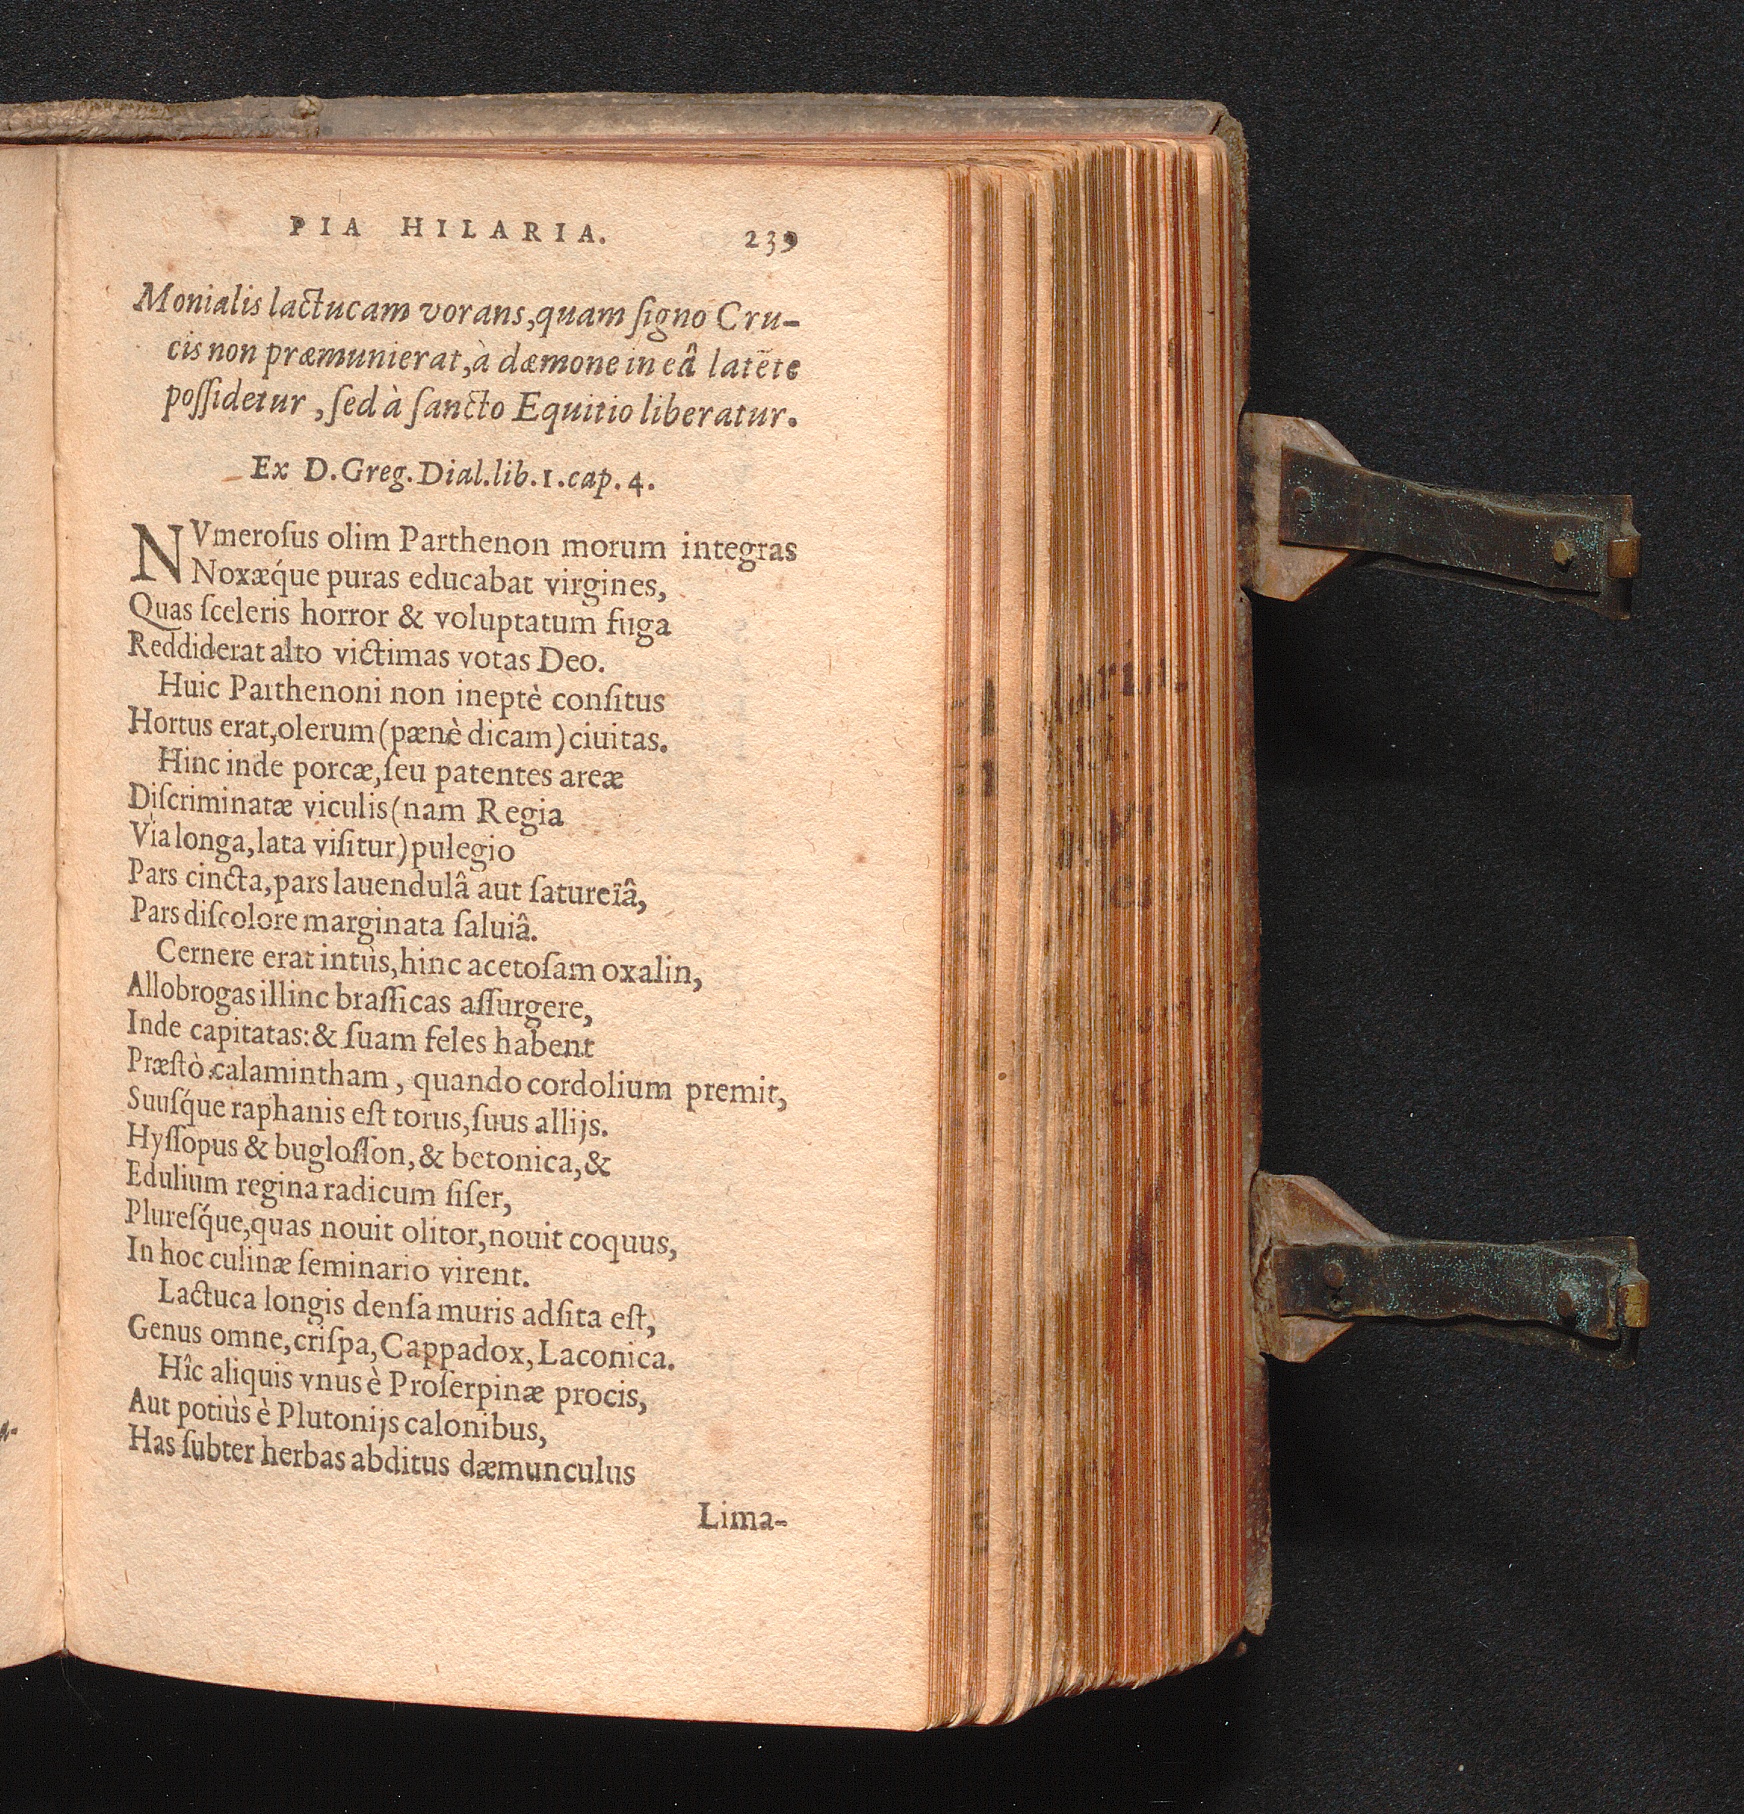 PIA HILARIA. 239
Monialis lactucam vorans, quam ſigno Cru-
cis non præmunierat, à dæmone in eâ latẽte
poſſidetur, ſed à ſancto Equitio liberatur.
Ex D. Greg. Dial. lib. 1. cap. 4.
NVmeroſus olim Parthenon morum integras
Noxæq́ue puras educabat virgines,
Quas ſceleris horror & voluptatum fuga
Reddiderat alto victimas votas Deo.
Huic Parthenoni non ineptè conſitus
Hortus erat, olerum (pænè dicam) ciuitas.
Hinc inde porcæ, ſeu patentes areæ
Diſcriminatæ viculis (nam Regia
Via longa, lata viſitur) pulegio
Pars cincta, pars lauendulâ aut ſatureïâ,
Pars diſcolore marginata ſaluiâ.
Cernere erat intùs, hinc acetoſam oxalin,
Allobrogas illinc braſſicas aſſurgere,
Inde capitatas: & ſuam feles habent
Præſtò calamintham, quando cordolium premit,
Suuſq́ue raphanis eſt torus, ſuus allijs.
Hyſſopus & bugloſſon, & betonica, &
Edulium regina radicum ſiſer,
Plureſq́ue, quas nouit olitor, nouit coquus,
In hoc culinæ ſeminario virent.
Lactuca longis denſa muris adſita eſt,
Genus omne, criſpa, Cappadox, Laconica.
Hîc aliquis vnus è Proſerpinæ procis,
Aut potiùs è Plutonijs calonibus,
Has ſubter herbas abditus dæmunculus
Lima-